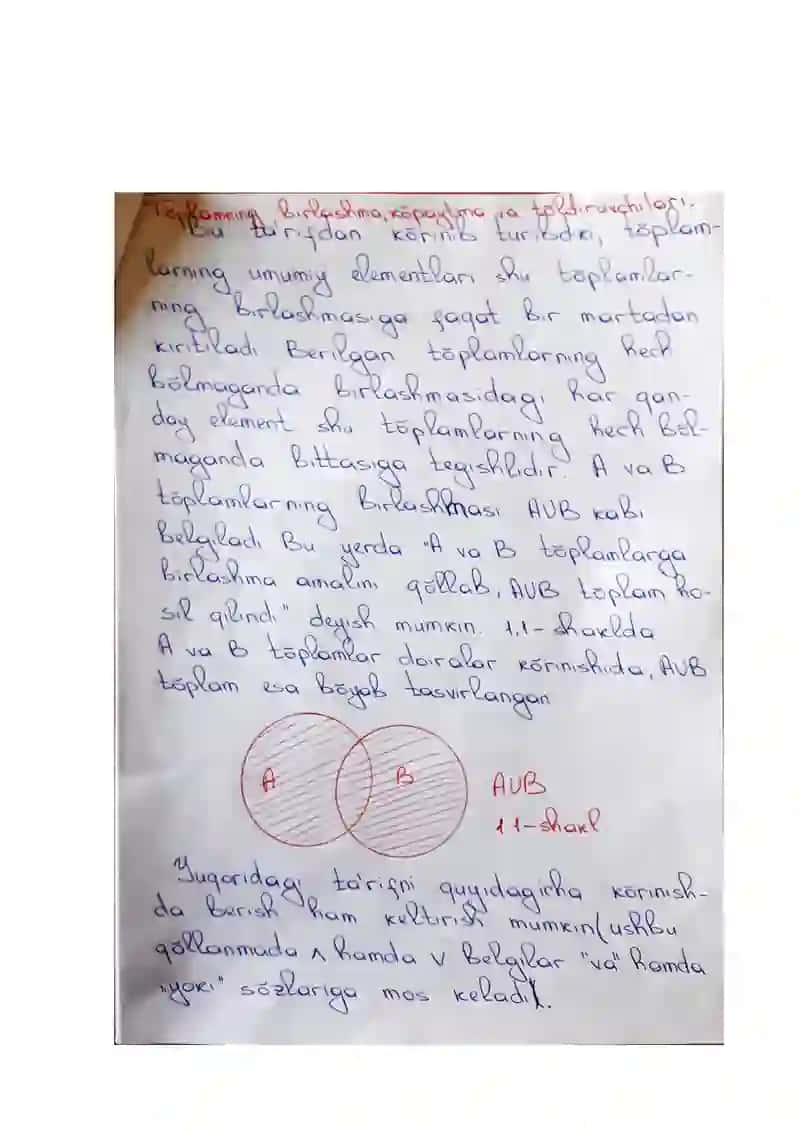 Tōplamning birlashma, kōpaytma va tōldiruvchilari.
Bu ta'rifdan kōrinib turibdiki, tōplam-
larning umumiy elementlari shu tōplamlar-
ning birlashmasiga faqat bir martadan
kiritiladi Berilgan tōplamlarning hech
bōlmaganda birlashmasidagi har qan-
day element shu tōplamlarning hech bōl-
maganda bittasiga tegishlidir. A va B
tōplamlarning birlashmasi AUB kabi
belgiladi Bu yerda "A va B tōplamlarga
birlashma amalini qōllab, AUB toplam ho-
sil qilindi" deyish mumkin. 1.1-shaklda
A va B tōplamlar doiralar kōrinishida, AUB
tōplam esa bōyab tasvirlangan
A B AUB
1 1-shakl
Yuqoridagi ta'rifni quyidagicha kōrinish-
da berish ham keltirish mumkin (ushbu
qōllanmada ∧ hamda ∨ belgilar "va" hamda
"yoki" sōzlariga mos keladi).